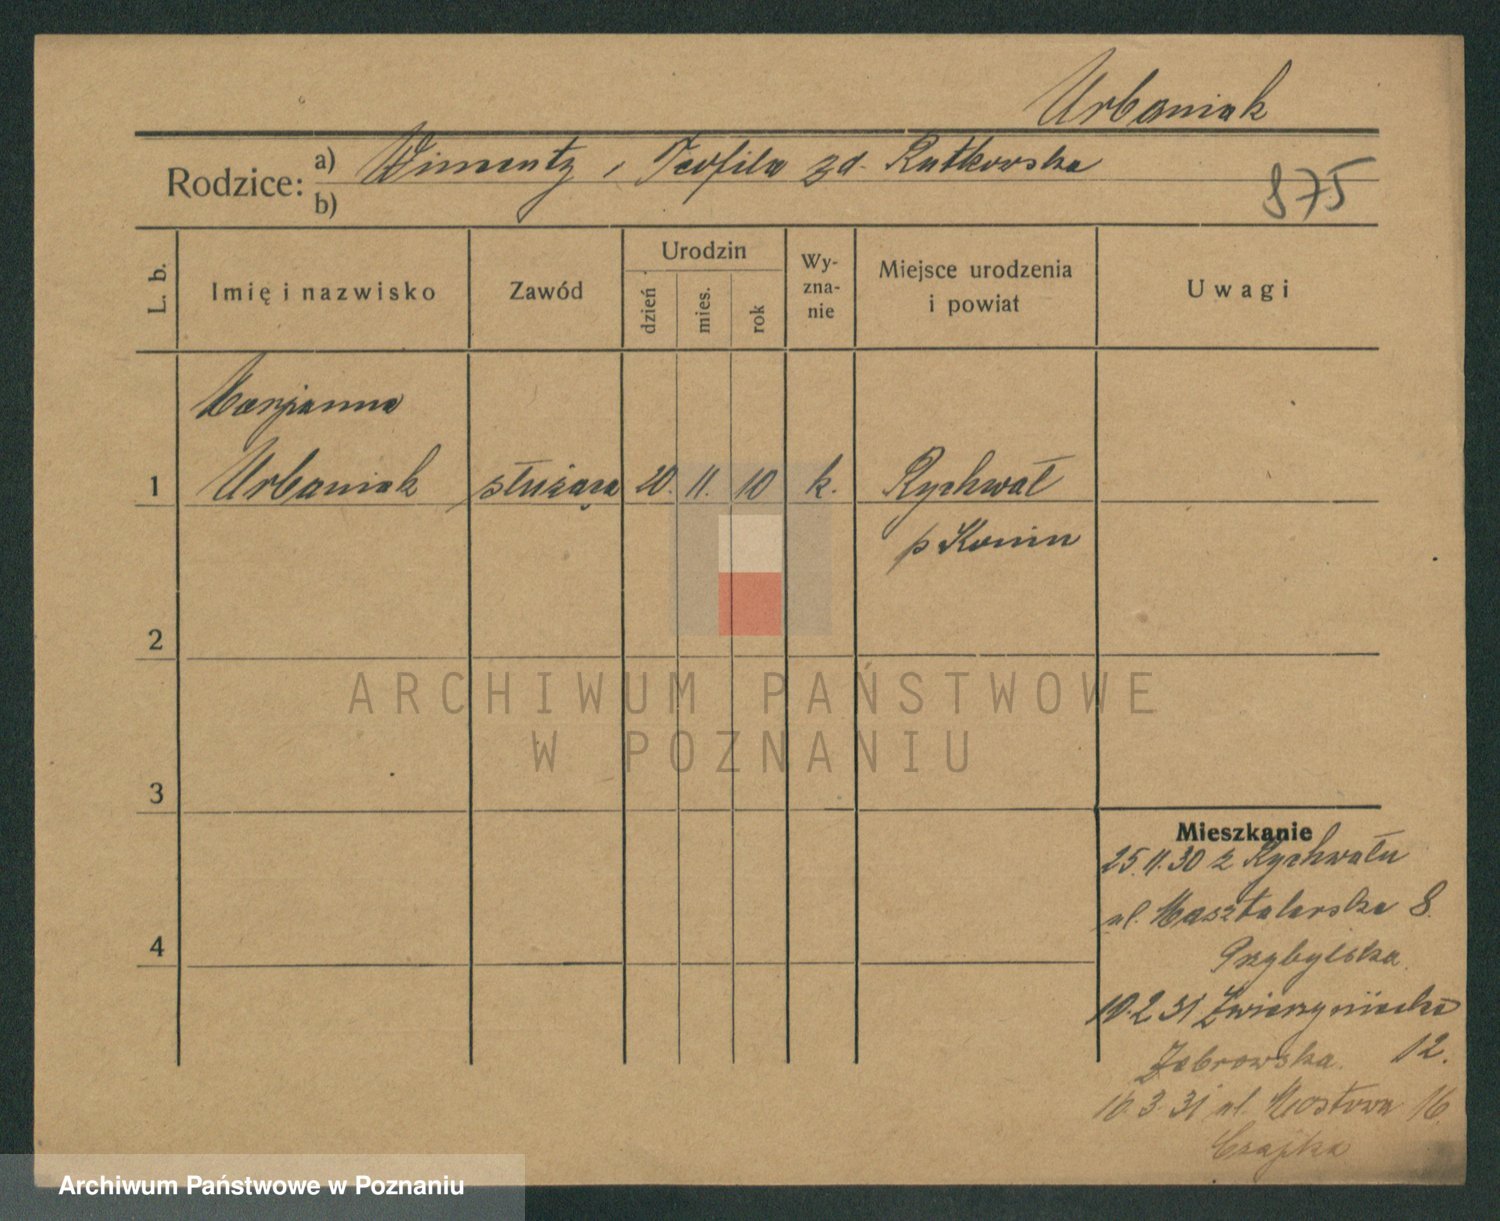 Urbaniak
Rodzice: a) Wincenty i Teofila zd. Rutkowska
b)
875
L. b.
Imię i nazwisko
Zawód
Urodzin
dzień
mies.
rok
Wy-
zna-
nie
Miejsce urodzenia
i powiat
Uwagi
Marjanna
1 Urbaniak służąca 20. 11. 10 k. Rychwał
p Konin
2
3
4
Mieszkanie
25.11.30 z Rychwału
ul. Masztalarska 8.
Przybylska
10.2 31 Zwierzyniecka
Żabrowska. 12.
16.3.31 ul. Mostowa 16
Czajka
ARCHIWUM PAŃSTWOWE
W POZNANIU
Archiwum Państwowe w Poznaniu